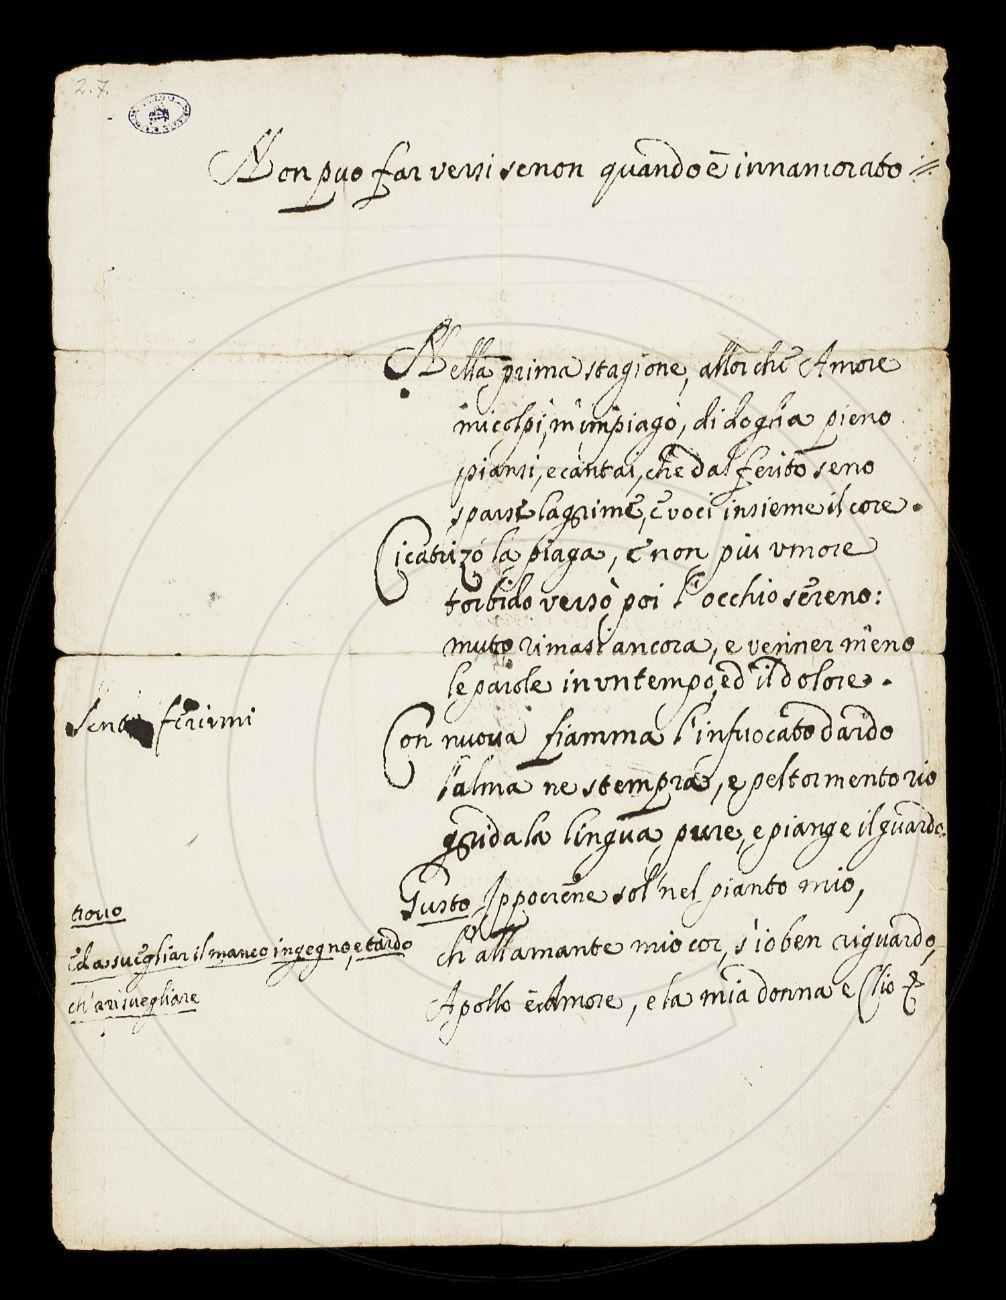 2.7.
Non puo far versi se non quando è innamorato
Nella prima stagione, allor che Amore
mi colpì, m'impiagò, di doglia pieno
piansi, e cantai, che dal ferito seno
sparse lagrime, e voci insieme il core.
Cicatrizò la piaga, e non piu vmore
torbido versò poi l'occhio sereno:
muto rimasi ancora, e venner meno
le parole in vn tempo, ed il dolore.
ferirmi
Con nuova fiamma l'infuocato dardo
l'alma ne stempra, e pel tormento rio
grida la lingua pure, e piange il guardo.
Gusto Ippocrene sol nel pianto mio,
trouo
ch'all'amante mio cor, s'io ben riguardo,
ed a suegliar il manco ingegno, e tardo
Apollo è Amore, e la mia donna è Clio
ch'a risuegliare